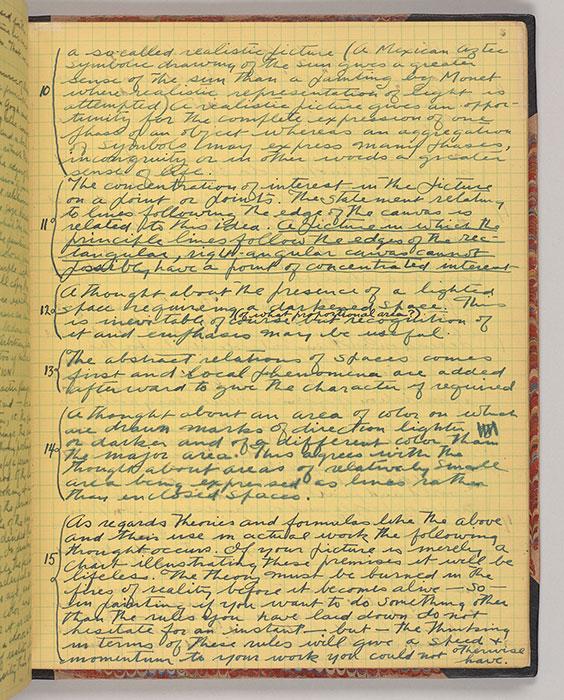 a so-called realistic picture (A Mexican Aztec
symbolic drawing of the sun gives a greater
sense of the sun than a painting by Monet
10 where realistic representation of light is
attempted) A realistic picture gives an oppor-
tunity for the complete expression of one
phase of an object whereas an aggregation
of symbols may express many phases,
incongruity or in other words a greater
sense of life.
The concentration of interest in the picture
on a point or points. The statement relating
to lines following the edge of the canvas is
11 related to this idea. A picture in which the
principle lines follow the edges of the rec-
tangular, right-angular canvas cannot
possibly have a point of concentrated interest
A thought about the presence of a lighted
12 space requiring a darkened space. This
is inevitable of course (of what proportional area?) but recognition of
it and emphasis may be useful.
The abstract relations of spaces comes
13 first and local phenomena are added
afterward to give the character if required
A thought about an area of color on which
are drawn marks of direction lighter
or darker and of a different color than
14 the major area. This agrees with the
thought about areas of relatively small
area being expressed as lines rather
than enclosed spaces.
As regards theories and formulas like the above
and their use in actual work the following
thought occurs. If your picture is merely a
15 chart illustrating these premises it will be
lifeless. The theory must be burned in the
fires of reality before it becomes alive — So —
in painting if you want to do something other
than the rules you have laid down do not
hesitate for an instant. but — the thinking
in terms of these rules will give a speed &
momentum to your work you could not otherwise
have.